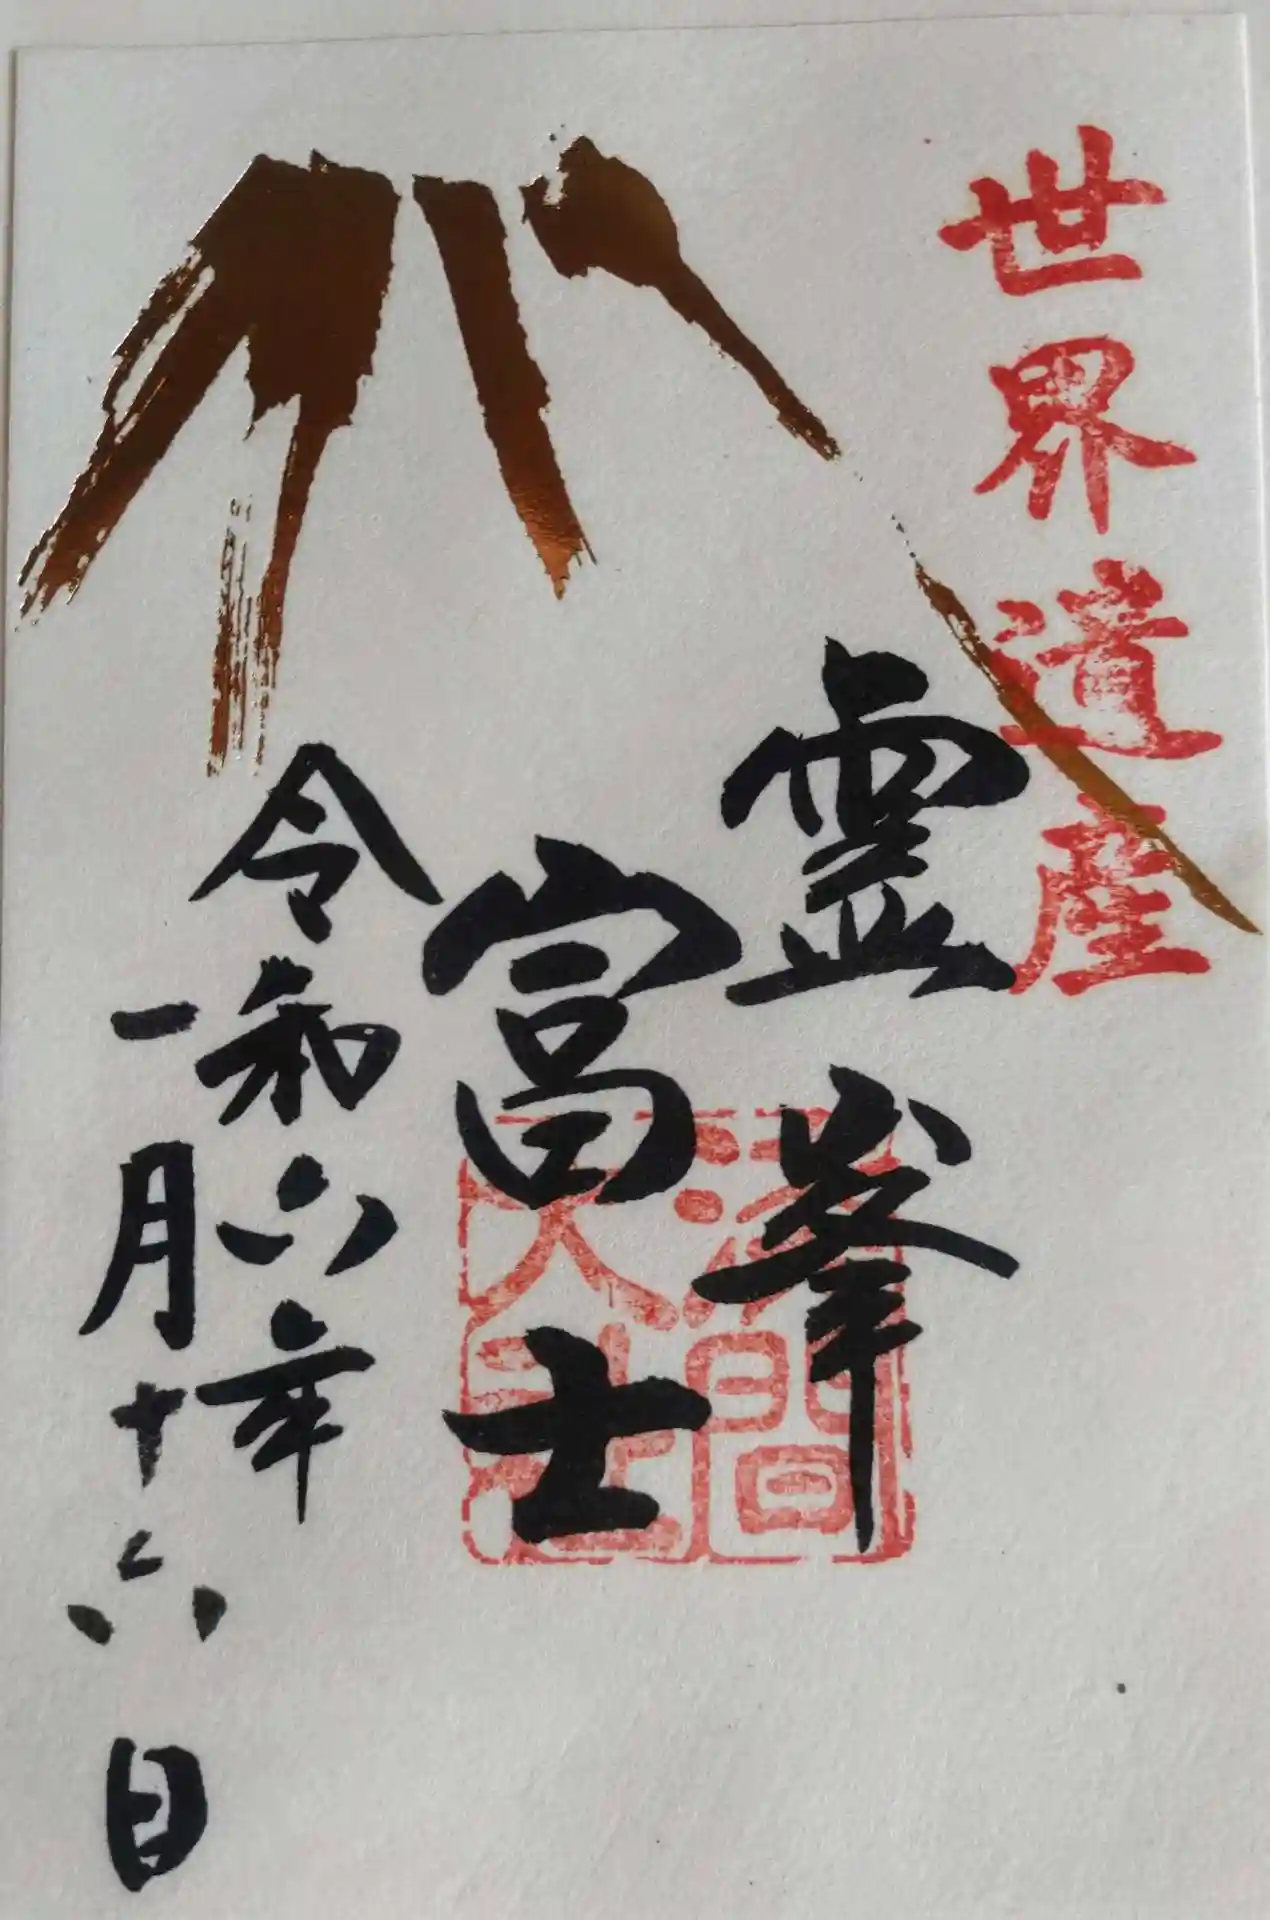 世界遺産
霊峯
富士
令和六年
一月十六日
浅間
大社